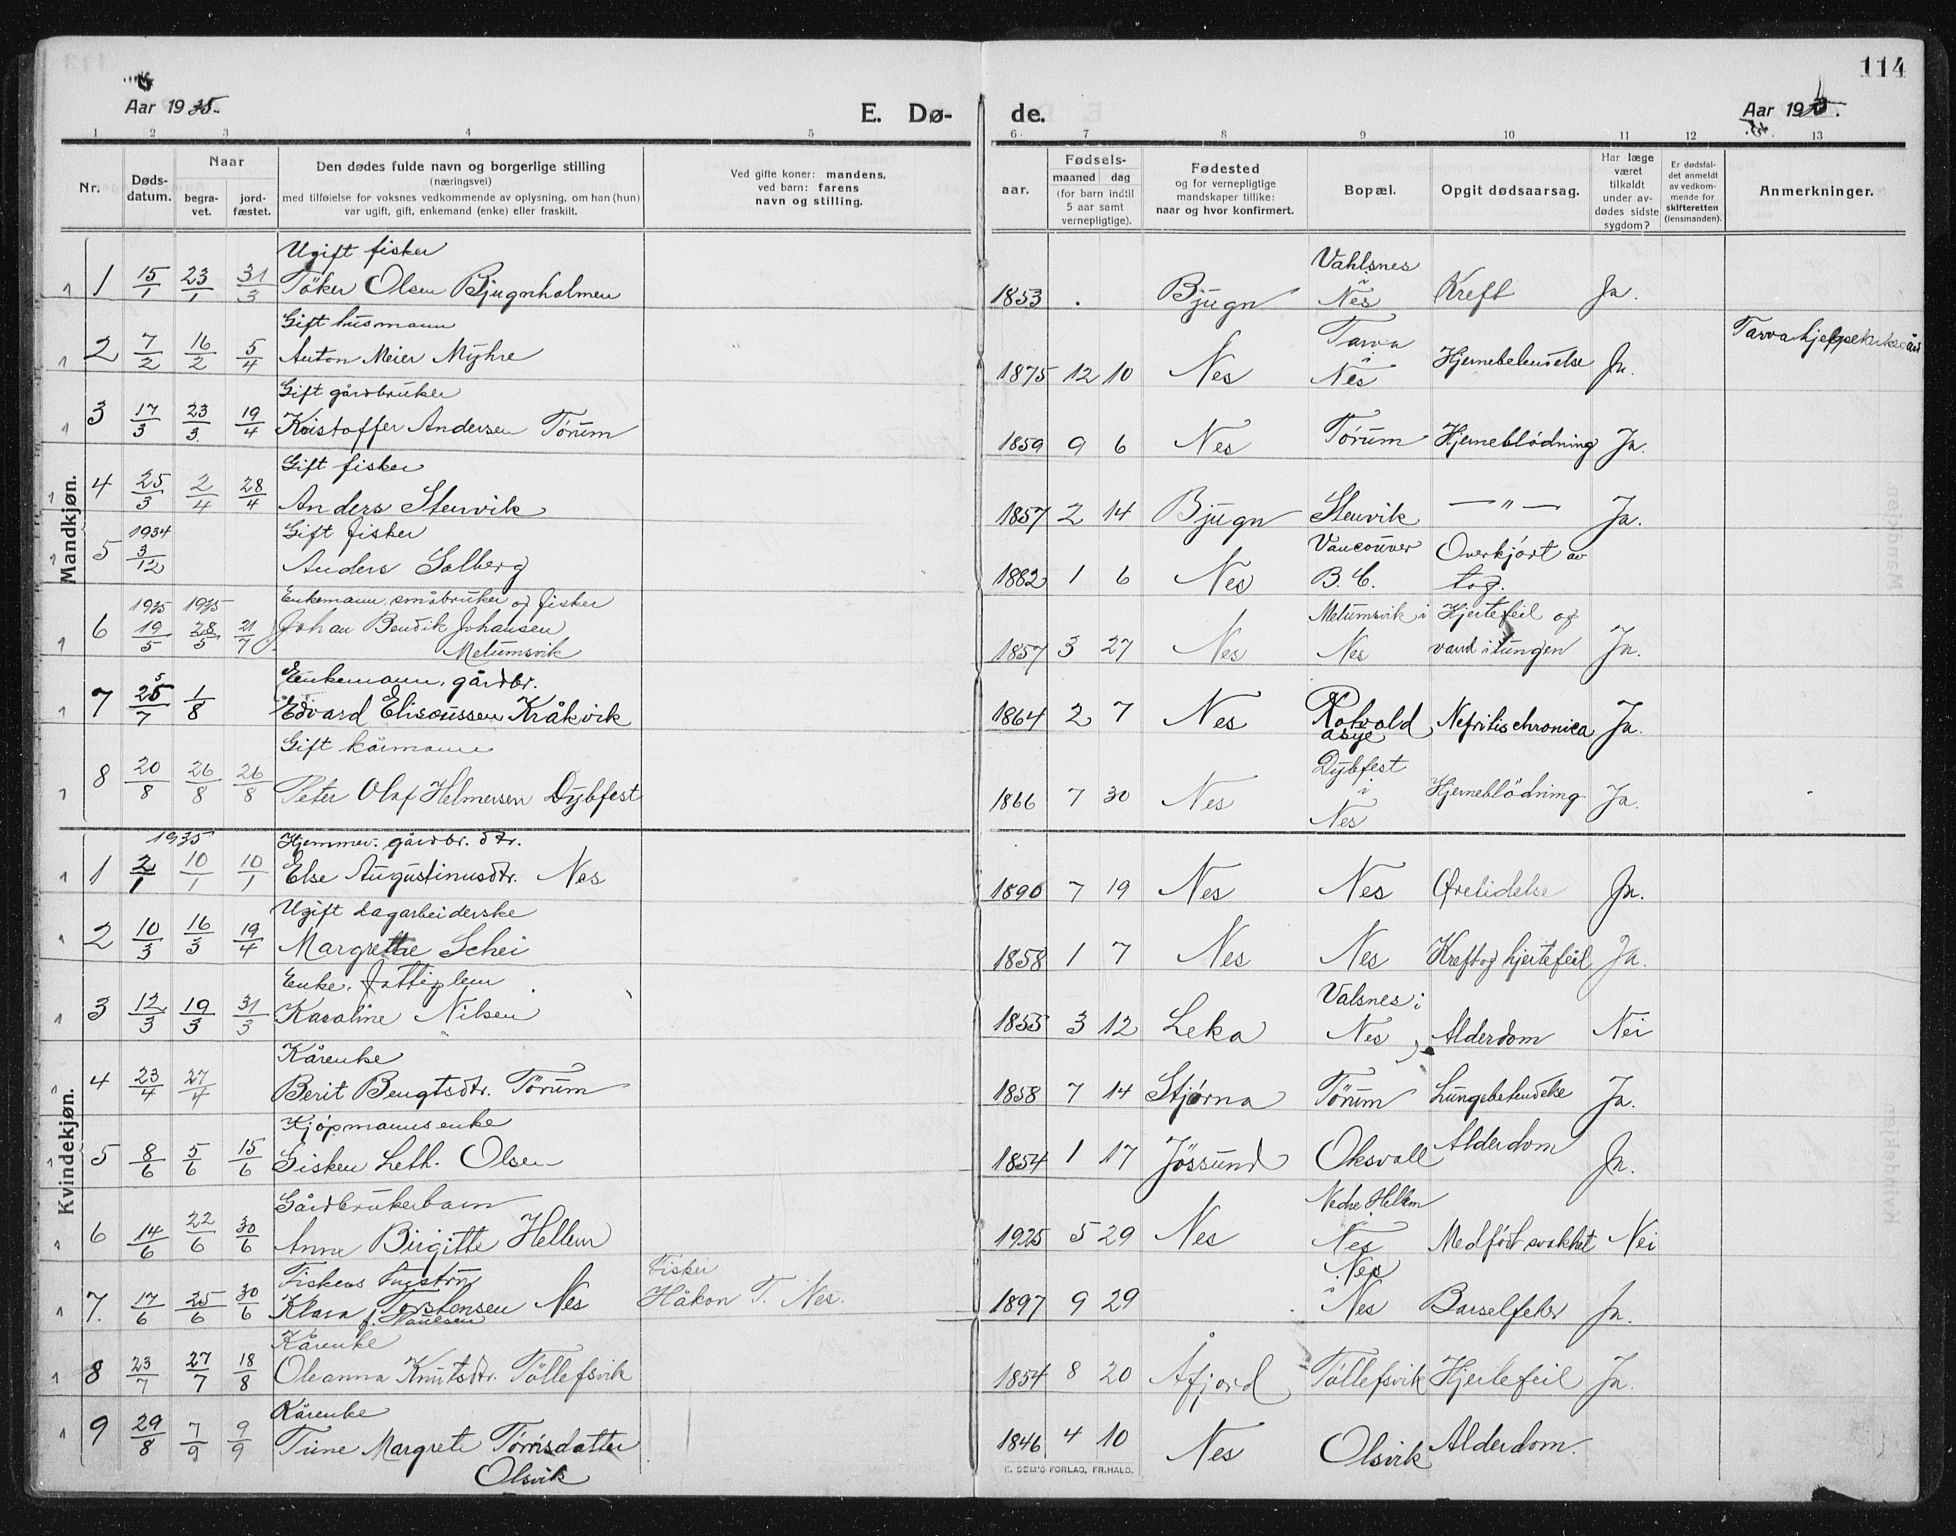 114
Aar 1935.
E. Dø-
de.
Aar 19
1 2 3 4 5 6 7 8 9 10 11 12 13
Nr.
Døds-
datum.
Naar
begra-
vet.
jord-
fæstet.
Den dødes fulde navn og borgerlige stilling
(næringsvei)
med tilføielse for voksnes vedkommende av oplysning, om han (hun)
var ugift, gift, enkemand (enke) eller fraskilt.
Ved gifte koner: mandens,
ved barn: farens
navn og stilling.
aar.
Fødsels-
maaned dag
(for barn indtil
5 aar samt
vernepligtige).
Fødested
og for vernepligtige
mandskaper tillike:
naar og hvor konfirmert.
Bopæl.
Opgit dødsaarsag.
Har læge
været
tilkaldt
under av-
dødes sidste
sygdom?
Er dødsfal-
det anmeldt
av vedkom-
mende for
skifteretten
(lensmanden).
Anmerkninger.
Mandkjøn.
Ugift fisker Vahlsnes
1 1 15/1 23/1 31/3 Töker Olsen Bjugnholmen 1853 . Bjugn i Nes Kreft Ja.
Gift husmann Tarva
1 2 7/2 16/2 5/4 Anton Meier Myhre 1875 12 10 Nes i Nes Hjernebetendelse Ja.
Gift gårdbruker
1 3 17/3 23/3 19/4 Kristoffer Andersen Tørum 1859 9 6 Nes Tørum Hjerneblødning Ja.
Gift fisker
1 4 25/3 2/4 28/4 Anders Stenvik 1857 2 14 Bjugn Stenvik — " — Ja.
1934 Gift fisker Vancouver Overkjørt av
1 5 3/12 Anders Solberg 1882 1 6 Nes B.C. tog.
1935 1935 Enkemann, småbruker og fisker Melumsvik i Hjertefeil og
1 6 19/5 28/5 21/7 Johan Bendik Johansen
Melumsvik 1857 3 27 Nes Nes vand i lungen Ja.
Enkemann, gårdbr.
1 7 25/7 1/8 Edvard Eliseussen Kråkvik 1864 2 7 Nes Rotvold
asyl Nefritis chronica Ja.
Gift kårmann Dybfest
1 8 20/8 26/8 26/8 Peter Olaf Helmersen Dybfest 1866 7 30 Nes i
Nes Hjerneblödning Ja.
Kvindekjøn.
1935 Hjemmev. gårdbr. dtr.
1 1 2/1 10/1 10/1 Else Augustinusdtr. Nes 1890 7 19 Nes Nes Ørelidelse Ja.
Ugift dagarbeiderske
1 2 10/3 16/3 19/4 Margrethe Schei 1858 1 7 Nes Nes Kreft og hjertefeil Ja.
Enke. Fattiglem Valsnes i
1 3 12/3 19/3 31/3 Karoline Nilsen 1855 3 12 Leka Nes Alderdom Nei
Kårenke
4 23/4 27/4 Berit Bengtsdtr. Tørum 1858 7 14 Stjørna Tørum Lungebetendelse Ja.
Kjøpmannsenke
1 5 8/6 5/6 15/6 Gisken Leth. Olsen 1854 1 17 Jössund Oksvoll Alderdom Ja.
Gårdbrukerbarn Nedre Hellem
1 6 14/6 22/6 30/6 Anne Birgitte Hellem 1925 5 29 Nes Nes Medfødt svakhet Nei
Fiskers hustru Fisker Nes
1 7. 17/6 25/6 30/6 Klara Torstensen Nes Håkon T. Nes. 1897 9 29 i Nes Barselfeber Ja.
f. Paulsen
Kårenke
1 8 23/7 27/7 18/8 Oleanna Knutsdtr. Töllefsvik 1854 8 20 Åfjord Töllefsvik Hjertefeil Ja.
Kårenke
1 9 29/8 7/9 9/9 Trine Margrete Tørrisdatter
Olsvik 1846 4 10 Nes Olsvik Alderdom.
E. SEM'S FORLAG, FR.HALD.